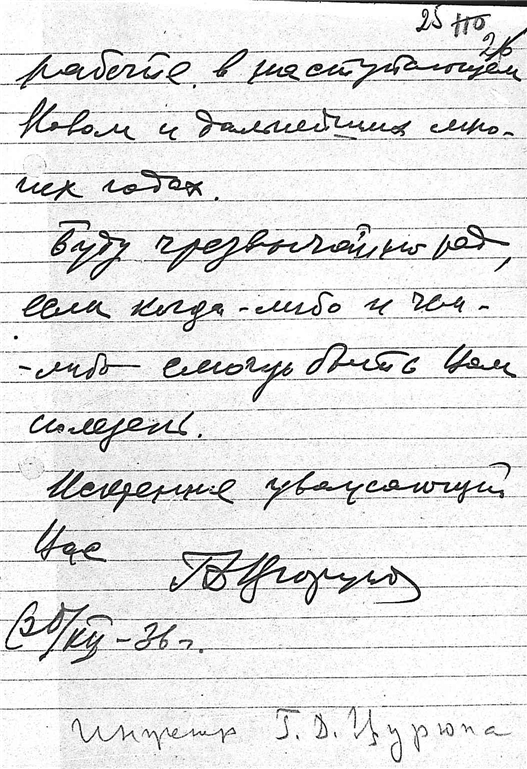 25
26
работе в наступающем
Новом и дальнейших мно-
гих годах.
Буду чрезвычайно рад,
если когда-либо и чем-
-либо смогу быть Вам
полезен.
Искренне уважающий
Вас
30/XII-36 г.
Г. Д. Цурюпа